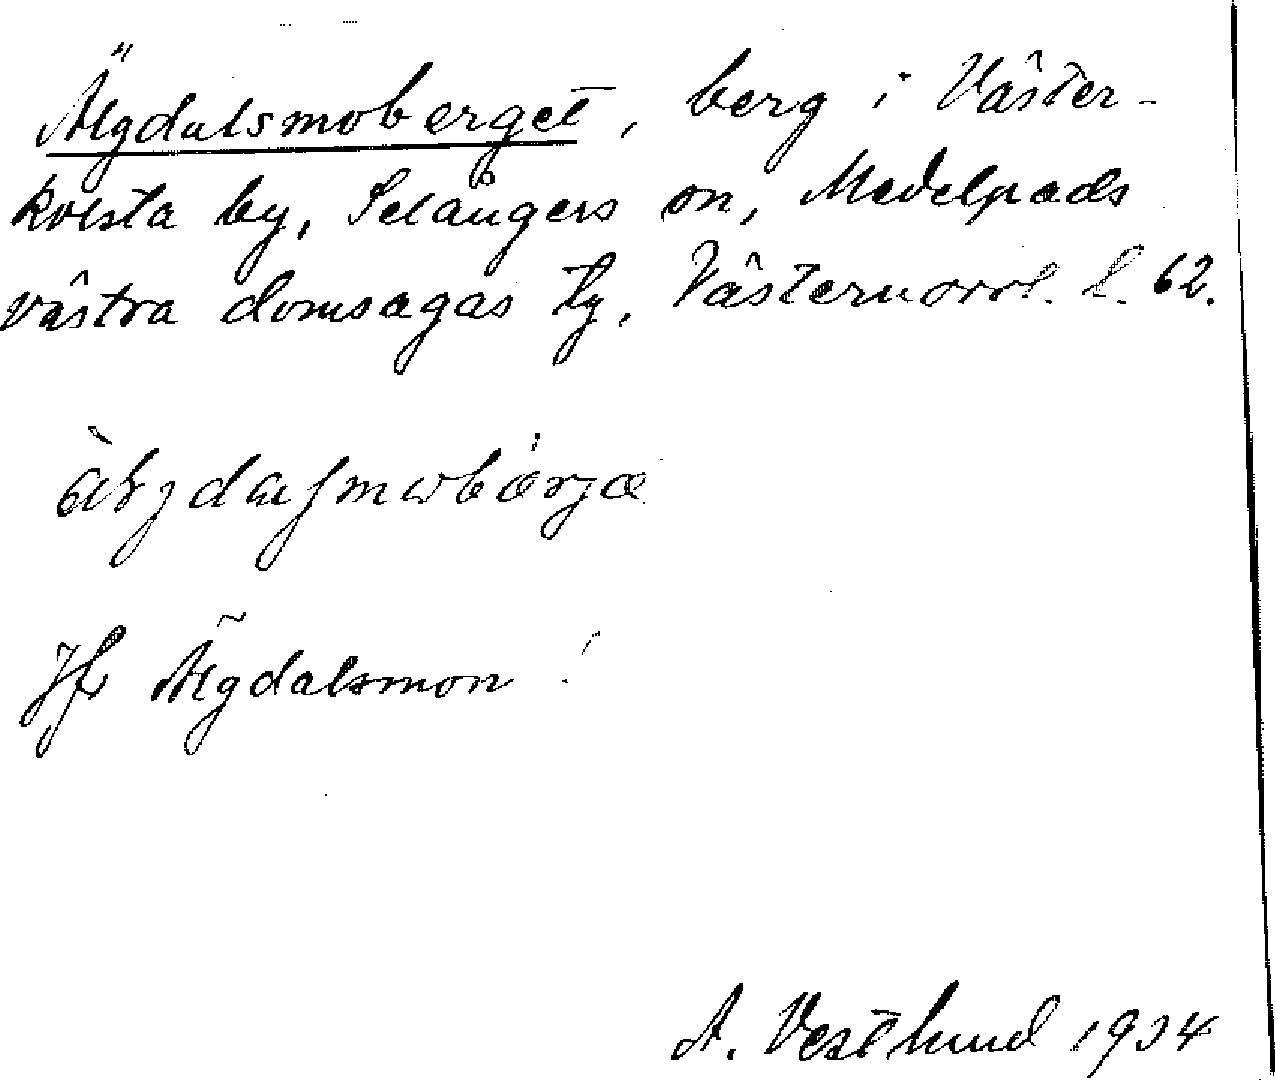 Älgdalsmoberget, berg i Väster-
kolsta by, Selångers sn, Medelpads
västra domsagas tg, Västernorrl. l. 62.
Jfr Älgdalsmon!
A. Vestlund 1934